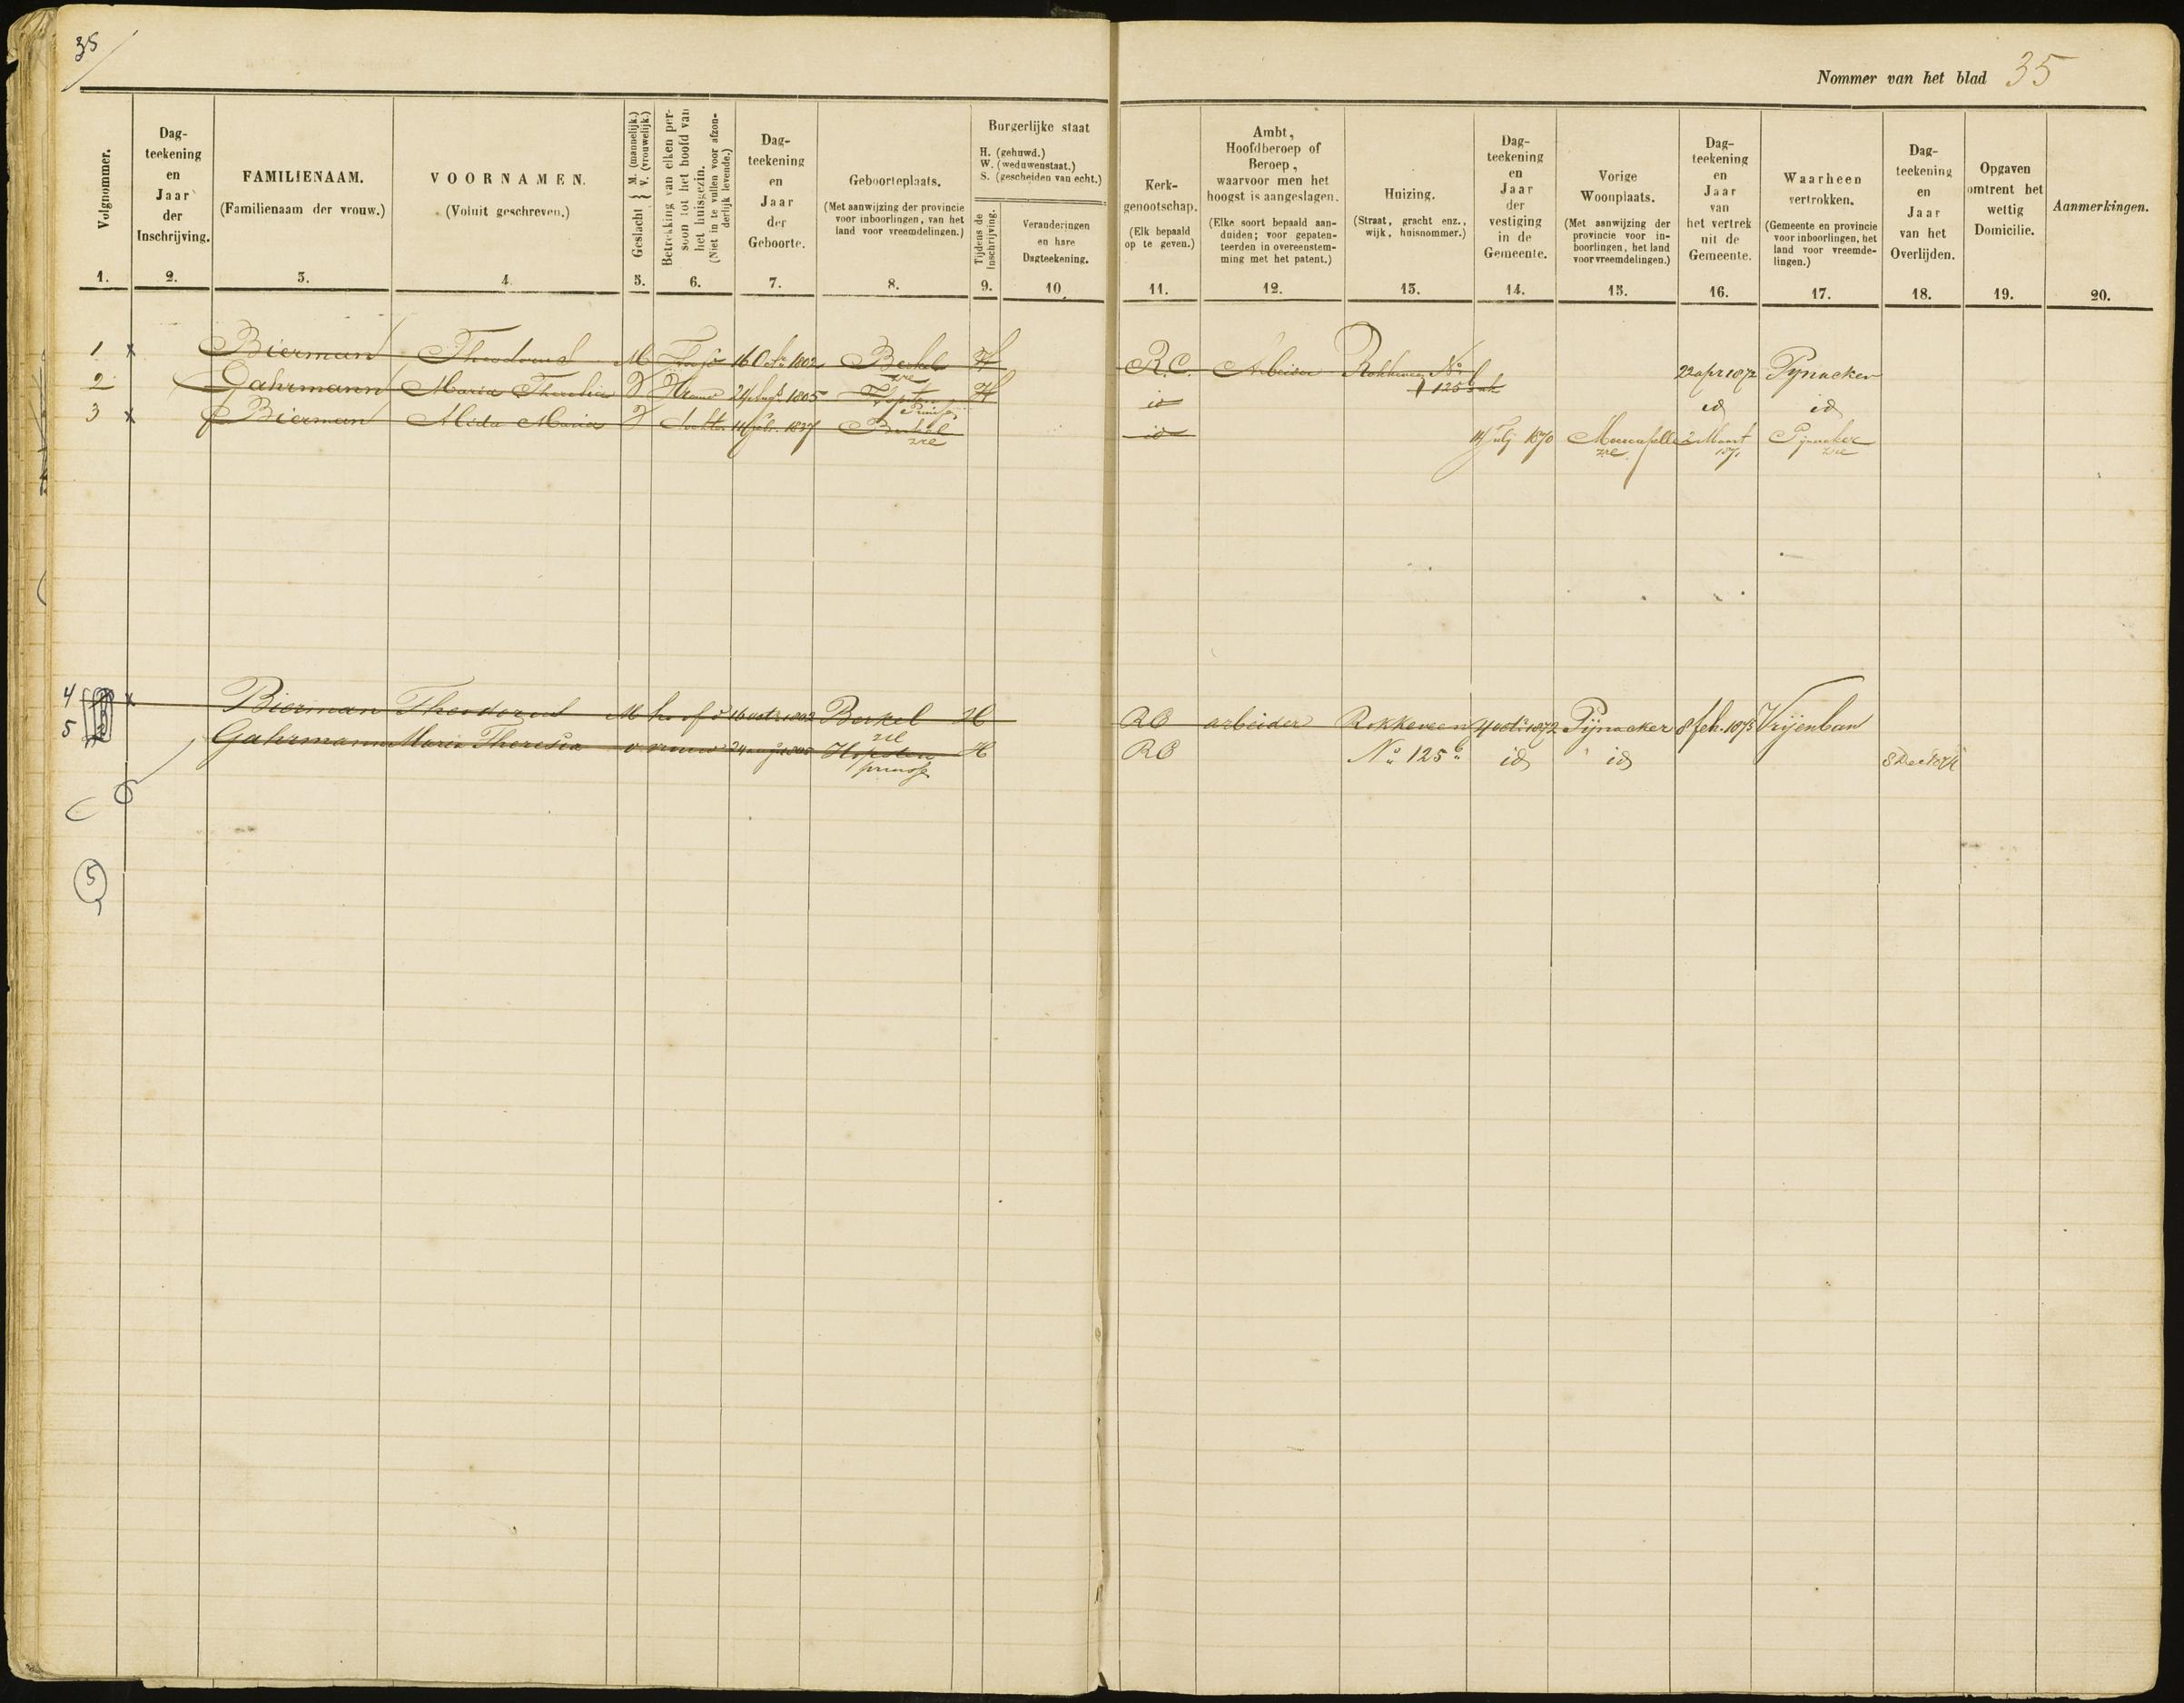 35
Nommer van het blad 35
Volgnommer.
1.
Dag-
teekening
en
Jaar
der
Inschrijving.
2.
FAMILIENAAM.
(Familienaam der vrouw.)
3.
VOORNAMEN.
(Voluit geschreven.)
4.
Geslacht { M. (mannelijk.) V. (vrouwelijk.)
5.
Betrekking van elken per-
soon tot het hoofd van
het huisgezin.
(Niet in te vullen voor afzon-
derlijk levende.)
6.
Dag-
teekening
en
Jaar
der
Geboorte.
7.
Geboorteplaats.
(Met aanwijzing der provincie
voor inboorlingen, van het
land voor vreemdelingen.)
8.
Burgerlijke staat
H. (gehuwd.)
W. (weduwenstaat.)
S. (gescheiden van echt.)
Tijdens de
Inschrijving.
9.
Veranderingen
en hare
Dagteekening.
10
Kerk-
genootschap.
(Elk bepaald
op te geven.)
11.
Ambt,
Hoofdberoep of
Beroep,
waarvoor men het
hoogst is aangeslagen.
(Elke soort bepaald aan-
duiden; voor gepaten-
teerden in overeenstem-
ming met het patent.)
12.
Huizing.
(Straat, gracht enz.,
wijk, huisnommer.)
13.
Dag-
teekening
en
Jaar
der
vestiging
in de
Gemeente.
14.
Vorige
Woonplaats.
(Met aanwijzing der
provincie voor in-
boorlingen, het land
voor vreemdelingen.)
15.
Dag-
teekening
en
Jaar
van
het vertrek
uit de
Gemeente.
16.
Waarheen
vertrokken.
(Gemeente en provincie
voor inboorlingen, het
land voor vreemde-
lingen.)
17.
Dag-
teekening
en
Jaar
van het
Overlijden.
18.
Opgaven
omtrent het
wettig
Domicilie.
19.
Aanmerkingen.
20.
1 x Bierman Theodorus M Hoofd 16 Octr 1802 Berkel zre H R.C. Arbeider Rokkeveen No 125 22 apr 1872 Pynacker
2 Gahrmann Maria Theresia V Vrouw 24 Augs 1805 Hopsten Pruisse H id id id
3 x Bierman Alida Maria V dochter 1837 Berkel zre id July 1870 zre 2 Maart 1871 Pijnacker zre
4 x Bierman Theodorus M hoofd 16 octr 1802 Berkel zre H RC arbeider Rokkeveen 4 octr 1872 Pijnacker 8 feb. 1875 Vrijenban
5 Gahrmann Maria Theresia v vrouw 24 aug 1805 Hopsten pruisse H RC No 125 id id 8 Dec
5